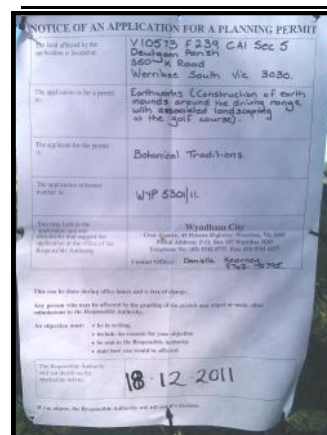 NOTICE OF AN APPLICATION FOR A PLANNING PERMIT
The land affected by the
application is located at:
V10573 F239 CA1 Sec 5
Deutgam Parish
350 K Road
Werribee South Vic 3030.
The application is for a permit
to:
Earthworks (Construction of earth
mounds around the driving range
with associated landscaping
at the golf course).
The applicant for the permit
is:
Botanical Traditions.
The application reference
number is:
WYP 5301/11
You may look at the
application and any
documents that support the
application at the office of the
Responsible Authority
Wyndham City
Civic Centre, 45 Princes Highway, Werribee, Vic 3030
Postal Address: P.O. Box 197 Werribee 3030
Contact Officer: Danielle Kearney
This can be done during office hours and is free of charge.
Any person who may be affected by the granting of the permit may object or make other
submissions to the Responsible Authority.
An objection must:
• be in writing
• include the reasons for your objection
• be sent to the Responsible Authority
• state how you would be affected
The Responsible Authority
will not decide on the
application before:
18·12·2011
If you object, the Responsible Authority will tell you its decision.